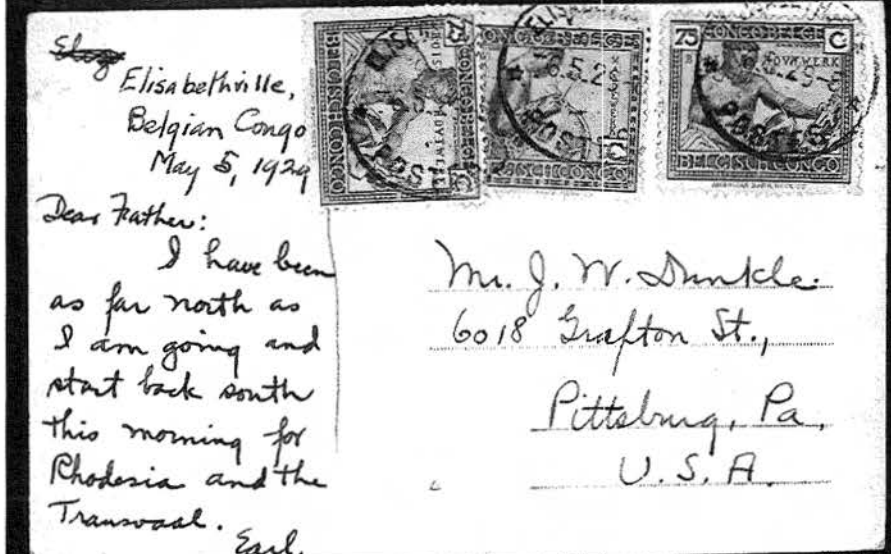 Elisabethville,
Belgian Congo
May 5, 1929
Dear Father:
I have been
as far north as
I am going and
start back south
this morning for
Rhodesia and the
Transvaal.
Earl.
75 CONGO BELGE C
BELGISCH CONGO
Mr. J. W. Dunkle.
6018 Grafton St.,
Pittsburg, Pa,
U.S.A.